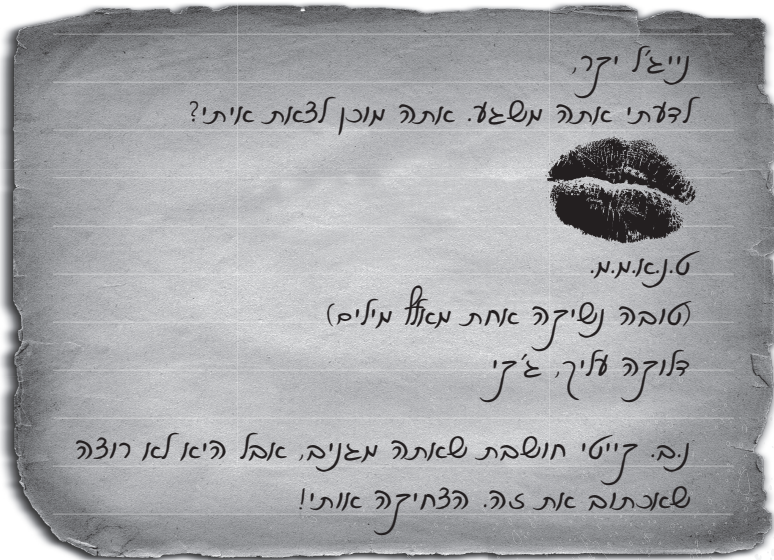 נייג'ל יקר,
לדעתי אתה משגע. אתה מוכן לצאת איתי?
ט.נ.א.מ.מ.
(טובה נשיקה אחת מאלף מילים)
דלוקה עליך, ג'קי
נ.ב. קייטי חושבת שאתה מגניב, אבל היא לא רוצה
שאכתוב את זה. הצחיקה אותי!